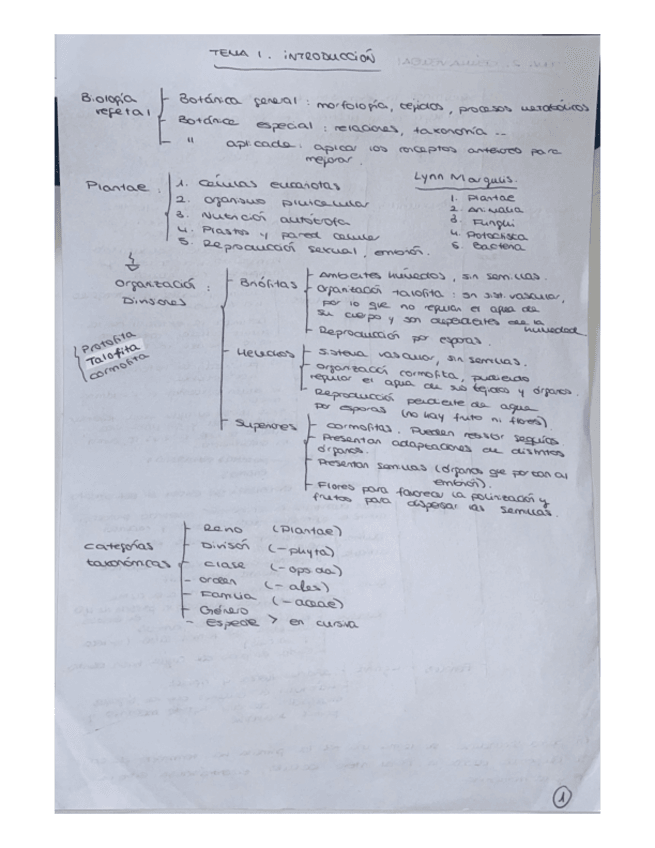 TEMA 1. INTRODUCCIÓN
Biología vegetal
Botánica general: morfología, tejidos, procesos metabólicos
Botánica especial: relaciones, taxonomía ...
" aplicada: aplicar los conceptos anteriores para
mejorar.
Plantae:
1. Células eucariotas
2. Organismo pluricelular
3. Nutrición autótrofa
4. Plastos y pared celular
5. Reproducción sexual, embrión.
Lynn Margulis.
1. Plantae
2. Animalia
3. Fungi
4. Protoctista
5. Bacteria
Organización:
Divisiones
Protofita
Talofita
Cormofita
Briófitas
Ambientes húmedos, sin semillas.
Organización talofita: sin sist. vascular,
por lo que no regulan el agua de
su cuerpo y son dependientes de la
humedad
Reproducción por esporas.
Helechos
Sistema vascular, sin semillas.
Organización cormofita, pudiendo
regular el agua de sus tejidos y órganos.
Reproducción pendiente de agua
por esporas (no hay fruto ni flores).
Superiores
Cormofitas. Pueden resistir sequías
Presentan adaptaciones de distintos
órganos.
Presentan semillas (órganos que portan al
embrión).
Flores para favorecer la polinización y
frutos para dispersar las semillas.
Categorías
taxonómicas
Reino (Plantae)
División (-phyta)
Clase (-opsida)
Orden (-ales)
Familia (-aceae)
Género
Especie > en cursiva
1